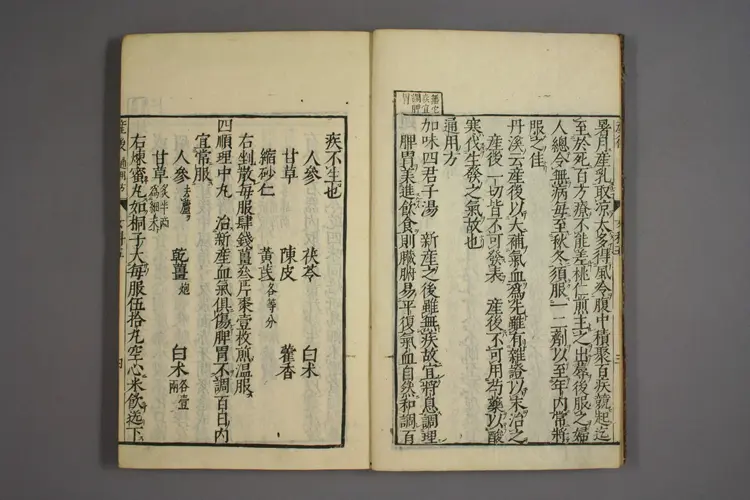 暑月産乳取凉太多得風冷腹中積聚百疾競起迄
至於死百方療不能差桃仁煎主之出蓐後服之婦
人總令無病毎至秋冬須服一二劑以至年内常將
服之佳
丹溪云産後以大補氣血爲先雖有雜證以末治之
産後一切皆不可發表 産後不可用芍藥以酸
寒伐生發之氣故也
通用方
加味四君子湯 新産之後雖無疾故宜將息調理
脾胃美進飲食則臟腑易平復氣血自然和調百
疾不生也
人參 茯苓 白朮
甘草 陳皮 藿香
縮砂仁 黃芪各等分
右剉散毎服肆錢薑叁片棗壹枚煎温服
四順理中丸 治新産血氣俱傷脾胃不調百日内
宜常服
人參去蘆 乾薑炮 白朮各壹兩
甘草炙半兩爲細末
右煉蜜丸如梧子大毎服伍拾丸空心米飲送下